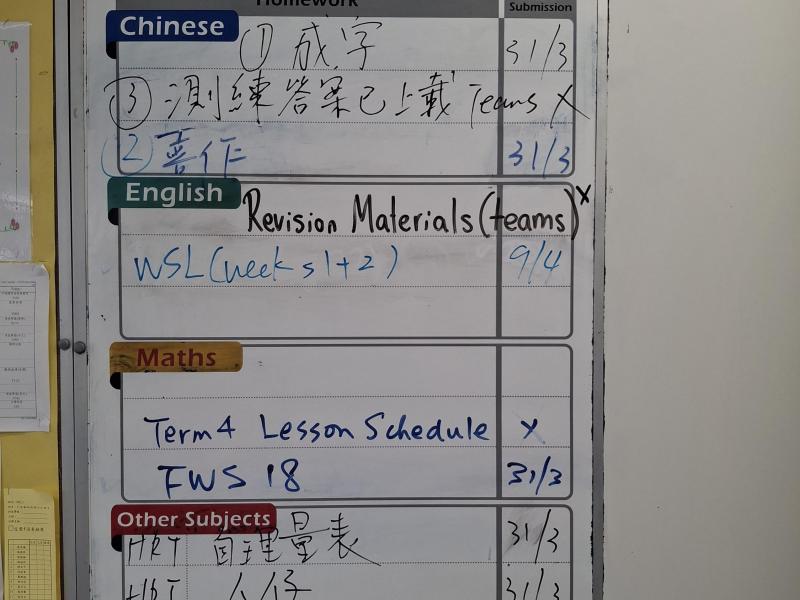 Homework Submission
Chinese ① 成字 31/3
③ 測練答案已上載 Teams X
② 善作 31/3
English Revision Materials (teams) X
WSL (weeks 1+2) 9/4
Maths
Term 4 Lesson Schedule X
FWS 18 31/3
Other Subjects
HRT 自理量表 31/3
31/3